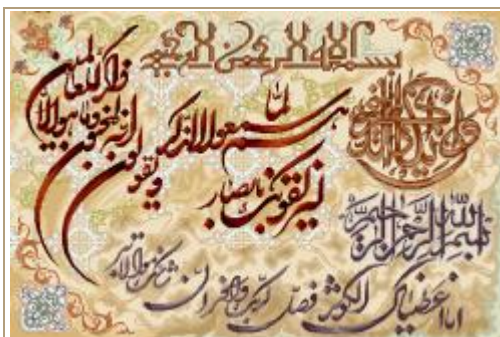 بسم الله الرحمن الرحيم
وان يكاد الذين كفروا
ليزلقونك بابصارهم لما سمعوا الذكر
ويقولون انه لمجنون وما هو الا ذكر للعالمين
بسم الله الرحمن الرحيم
انا اعطيناك الكوثر فصل لربك وانحر ان شانئك هو الابتر